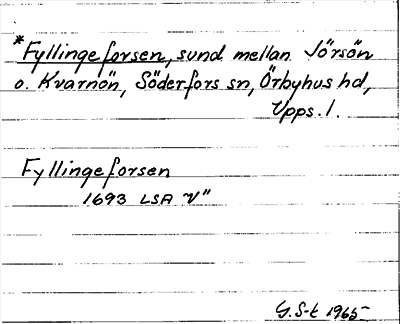 *Fyllingeforsen, sund mellan Jörsön
o. Kvarnön, Söderfors sn, Örbyhus hd,
Upps. l.
Fyllingeforsen
1693 LSA V"
G. S-t 1965